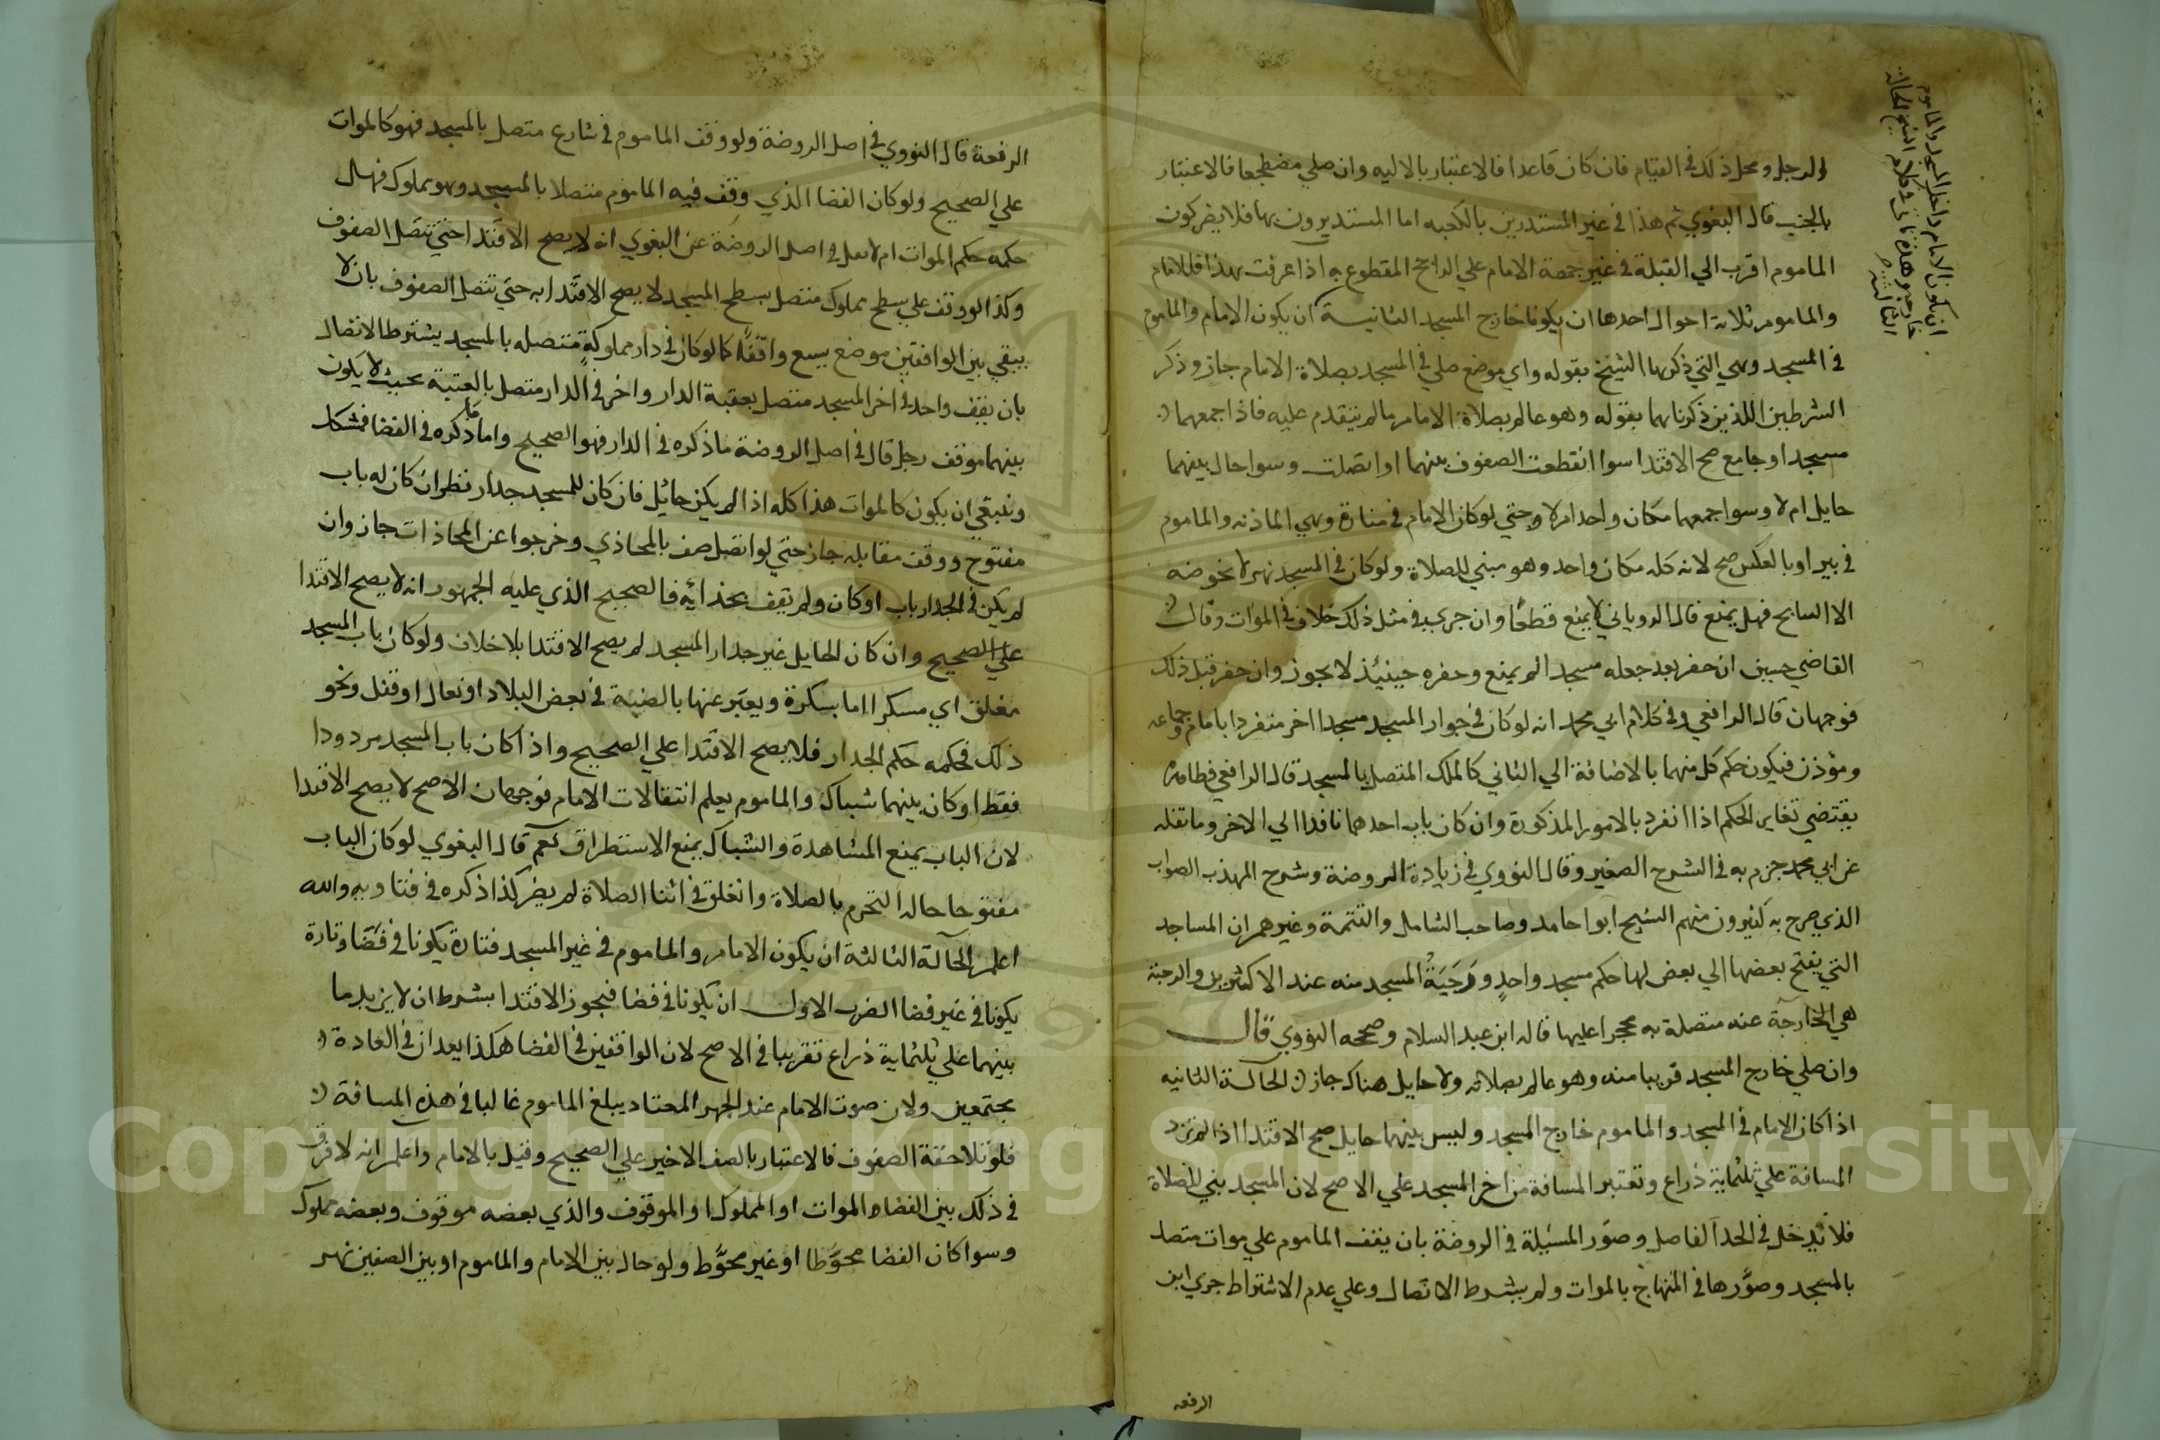 الرجل ومحل ذلك في القيام فان كان قاعدا فالاعتبار بالاليه وان صلي مضطجعا فالاعتبار
بالجنب قال البغوي ثم هذا في غير المستدرين بالكعبه اما المستديرون بها فلا يضر كون
الماموم اقرب الي القبلة في غير جهة الامام علي الراجح المقطوع به اذا عرفت هذا فللامام
والماموم ثلاثة احوال احدها ان يكونا خارج المسجد الثانية ان يكون الامام والماموم
في المسجد وهي التي ذكرها الشيخ بقوله واي موضع صلي في المسجد بصلاة الامام جاز وذكر
الشرطين اللذين ذكرناهما بقوله وهو عالم بصلاة الامام مالم يتقدم عليه فاذا جمعهما
مسجد او جامع صح الاقتدا سوا انقطعت الصفوف بينهما او اتصلت وسوا حال بينهما
حايل ام لا وسوا جمعهما مكان واحد ام لا وحتي لو كان الامام في منارة وهي الماذنه والماموم
في بير او بالعكس صح لانه كله مكان واحد وهو مبني للصلاة ولو كان في المسجد نهر لا يخوضه
الا السابح فهل يمنع قال الروياني لا يمنع قطعا وان جري في مثل ذلك خلاف في الموات وقال
القاضي حسين ان حفر بعد جعله مسجدا لم يمنع وحفره حينئذ لا يجوز وان حفر قبل ذلك
فوجهان قال الرافعي وفي كلام ابي محمد انه لو كان في جوار المسجد مسجدا اخر منفردا بامام وجماعه
ومؤذن فيكون حكم كل منهما بالاضافة الي الثاني كالملك المتصل بالمسجد قال الرافعي فظاهره
يقتضي تغاير الحكم اذا انفرد بالامور المذكورة وان كان باب احدهما نافدا الي الاخر وما نقله
عن ابي محمد جزم به في الشرح الصغير وقال النووي في زيادة الروضة وشرح المهذب الصواب
الذي صرح به كثيرون منهم الشيخ ابوا حامد وصاحب الشامل والتتمة وغيرهم ان المساجد
التي يفتح بعضها الي بعض لها حكم مسجد واحد ورحبة المسجد منه عند الاكثرين والرحبة
هي الخارجة عنه متصلة به محجرا عليها قاله ابن عبد السلام وصححه النووي قال
وان صلي خارج المسجد قريبا منه وهو عالم بصلاته ولا حايل هناك جاز الحالة الثانيه
اذا كان الامام في المسجد والماموم خارج المسجد وليس بينهما حايل صح الاقتدا اذا لم تزد
المسافة علي ثلثماية ذراع وتعتبر المسافة من اخر المسجد علي الاصح لان المسجد بني للصلاة
فلا يدخل في الحد الفاصل وصور المسئلة في الروضة بان يقف الماموم علي موات متصل
بالمسجد وصوَّرها في المنهاج بالموات ولم يشرط الاتصال وعلي عدم الاشتراط جري ابن
الرفعه
ان يكون الامام داخل المسجد والماموم
خارجه وهذه تاتي في كلام الشيخ الحالة
الثالثة
الرفعة قال النووي في اصل الروضة ولو وقف الماموم في شارع متصل بالمسجد فهو كالموات
علي الصحيح ولو كان الفضا الذي وقف فيه الماموم متصلا بالمسجد وهو مملوك فهل
حكمه حكم الموات ام لا نقل في اصل الروضة عن البغوي انه لا يصح الاقتدا حتي تتصل الصفوف
وكذا لو وقف علي سطح مملوك متصل بسطح المسجد لا يصح الاقتدا به حتي تتصل الصفوف بان لا
يبقي بين الواقفين موضع يسع واقفا كما لو كان في دار مملوكة متصله بالمسجد يشترط الاتصال
بان يقف واحد في اخر المسجد متصل بعتبة الدار واخر في الدار متصل بالعتبة بحيث لا يكون
بينهما موقف رجل قال في اصل الروضة ما ذكره في الدار فهو الصحيح واما ما ذكره في الفضا فمشكل
وينبغي ان يكون كالموات هذا كله اذا لم يكن حائل فان كان للمسجد جدار نظر ان كان له باب
مفتوح ووقف مقابله جاز حتي لو اتصل صف بالمحاذي وخرجوا عن المحاذات جاز وان
لم يكن في الجدار باب او كان ولم يقف بحذائه فالصحيح الذي عليه الجمهور انه لا يصح الاقتدا
علي الصحيح وان كان الحايل غير جدار المسجد لم يصح الاقتدا بلا خلاف ولو كان باب المسجد
مغلق اي مسكرا اما بسكرة ويعبر عنها بالضبة في بعض البلاد او نعال او قفل ونحو
ذلك فحكمه حكم الجدار فلا يصح الاقتدا علي الصحيح واذا كان باب المسجد مردودا
فقط او كان بينهما شباك والماموم يعلم انتقالات الامام فوجهان الاصح لا يصح الاقتدا
لان الباب يمنع المشاهدة والشباك يمنع الاستطراق نعم قال البغوي لو كان الباب
مفتوحا حاله التحرم بالصلاة وانغلق في اثنا الصلاة لم يضر كذا ذكره في فتاويه والله
اعلم الحالة الثالثة ان يكون الامام والماموم في غير المسجد فتارة يكونا في فضا وتارة
يكونا في غير فضا الضرب الاول ان يكونا في فضا فيجوز الاقتدا بشرط ان لا يزيد ما
بينهما علي ثلثماية ذراع تقريبا في الاصح لان الواقفين في الفضا هكذا يعدان في العادة
مجتمعين ولان صوت الامام عند الجهر المعتاد يبلغ الماموم غالبا في هذه المسافة
فلو تلاحقة الصفوف فالاعتبار بالصف الاخير علي الصحيح وقيل بالامام واعلم انه لا فرق
في ذلك بين الفضا الموات او المملوك او الموقوف والذي بعضه موقوف وبعضه مملوك
وسوا كان الفضا محوَّطا او غير محوَّط ولو حال بين الامام والماموم او بين الصفين نهر
Copyright © King Saud University